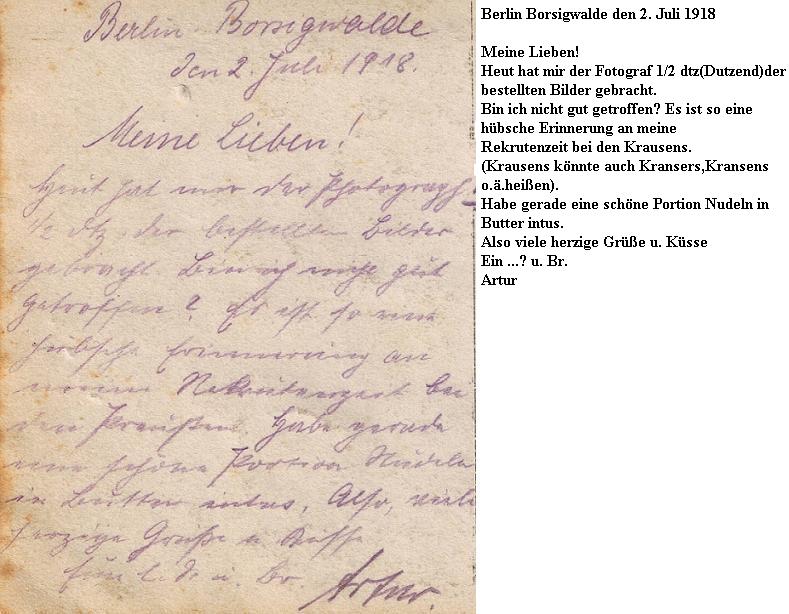 Berlin Borsigwalde
den 2. Juli 1918.
Meine Lieben!
Heut hat mir der Photograph
1/2 dtz. der bestellten Bilder
gebracht. Bin ich nicht gut
getroffen? Es ist so eine
hübsche Erinnerung an
meine Rekrutenzeit bei
den Preußen. Habe gerade
eine schöne Portion Nudeln
in Butter intus. Also, viele
herzige Grüße u. Küsse
Euer l. S. u. Br. Artur.
Berlin Borsigwalde den 2. Juli 1918
Meine Lieben!
Heut hat mir der Fotograf 1/2 dtz(Dutzend)der
bestellten Bilder gebracht.
Bin ich nicht gut getroffen? Es ist so eine
hübsche Erinnerung an meine
Rekrutenzeit bei den Krausens.
(Krausens könnte auch Kransers,Kransens
o.ä.heißen).
Habe gerade eine schöne Portion Nudeln in
Butter intus.
Also viele herzige Grüße u. Küsse
Ein ...? u. Br.
Artur